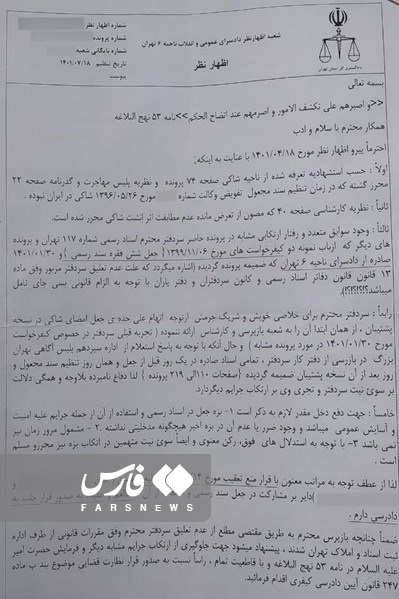 شعبه اظهارنظر دادسرای عمومی و انقلاب ناحیه ۶ تهران
اظهار نظر
شماره اظهار نظر
شماره پرونده
شماره بایگانی شعبه
تاریخ تنظیم ۱۴۰۱/۰۷/۱۸
پیوست
دادگستری کل استان تهران
بسمه تعالی
<<و اصبرهم علی تکشف الامور و اصرمهم عند اتضاح الحکم>>نامه ۵۳ نهج البلاغه
همکار محترم با سلام و ادب
احتراماً پیرو اظهار نظر مورخ ۱۴۰۱/۰۴/۱۸ با عنایت به اینکه:
اولاً : حسب استشهادیه تعرفه شده از ناحیه شاکی صفحه ۷۴ پرونده و نظریه پلیس مهاجرت و گذرنامه صفحه ۲۲
محرز گشته که در زمان تنظیم سند مجعول تفویض وکالت شماره مورخ ۱۳۹۶/۰۵/۲۶ شاکی در ایران نبوده .
ثانیاً : نظریه کارشناسی صفحه ۴۰ که مصون از تعرض مانده عدم مطابقت اثر انگشت شاکی محرز شده است.
ثالثاً : وجود سوابق متعدد و رفتار ارتکابی مشابه در پرونده حاضر سردفتر محترم اسناد رسمی شماره ۱۱۷ تهران و پرونده
های دیگر که ازباب نمونه دو کیفرخواست های مورخ ۱۳۹۹/۱۱/۰۶{ جعل شش فقره سند رسمی } و ۱۴۰۱/۰۱/۳۰
صادره از دادسرای ناحیه ۶ تهران که ضمیمه پرونده گردیده (اشاره میگردد که علت عدم تعلیق سردفتر مزبور وفق ماده
۱۳ قانون قانون دفاتر اسناد رسمی و کانون سردفتران و دفتر یاران با توجه به الزام قانونی بسی جای تامل
میباشد؟!؟!؟!؟!).
رابعاً : سردفتر محترم برای خلاصی خویش و شریک جرمش ازتوجه اتهام علی جده ی جعل امضای شاکی در نسخه
پشتیبان ، از همان ابتدا آن را به شعبه بازپرسی و کارشناس ارائه ننموده ( تجربه قبلی سردفتر در خصوص کیفرخواست
مورخ ۱۴۰۱/۰۱/۳۰ در مورد پرونده مشابه ) و حال آنکه با توجه به پاسخ استعلام از اداره سیزدهم پلیس آگاهی تهران
بزرگ در بازرسی از دفتر کار سردفتر ، تمامی اسناد صادره در یک روز قبل از جعل و همان روز تنظیم سند مجعول و
روز بعد از آن نسخه پشتیبان ضمیمه گردیده {صفحات ۱۱۰الی ۲۱۹ پرونده } لذا دفاع نامبرده بلاوجه و همگی دلالت
بر سوئ نیت سردفتر و تجری وی بر ارتکاب جرایم دیگردارد.
خامساً : جهت دفع دخل مقدر لازم به ذکر است ۱- بزه جعل در اسناد رسمی و استفاده از آن از جمله جرایم علیه امنیت
و آسایش عمومی میباشد و وجود ضرر یا عدم آن در بزه اخیر هیچگونه مدخلیتی نداشته .۲- مشمول مرور زمان نیز
نمی باشد ۳- با توجه به استدلال های فوق، رکن معنوی و ایضاً سوئ نیت متهمین در اتکاب بزه نیز محرزو مسلم
است .
لذا از عطف توجه به مراتب معنون با قرار منع تعقیب مورخ
دایر بر مشارکت در جعل سند رسمی و صدور قرار جلب به
دادرسی دارم .
ضمناً چنانچه بازپرس محترم به طریق مقتضی مطلع از عدم تعلیق سردفتر محترم وفق مقررات قانونی از طرف اداره
ثبت اسناد و املاک تهران شدند، پیشنهاد میشود جهت جلوگیری از ارتکاب جرایم مشابه دیگر و فرمایش حضرت امیر
علیه السلام در نامه ۵۳ نهج البلاغه و با قاطعیت تمام ، راساً نسبت به صدور قرار نظارت قضایی موضوع بند پ ماده
۲۴۷ قانون آیین دادرسی کیفری اقدام فرمائید.
فارس
FARSNEWS